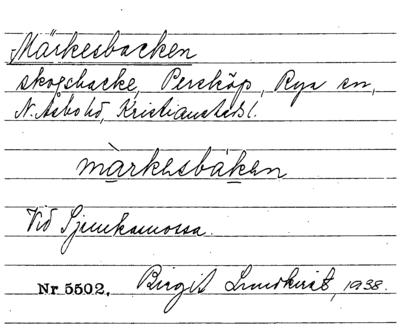 Märkesbacken
skogsbacke, Perstöp, Rya sn,
N. Åsbo hd, Kristianstads l.
màrkesbákan
Vid Sjunkamossa.
Nr 5502. Birgit Lundkvist, 1938.